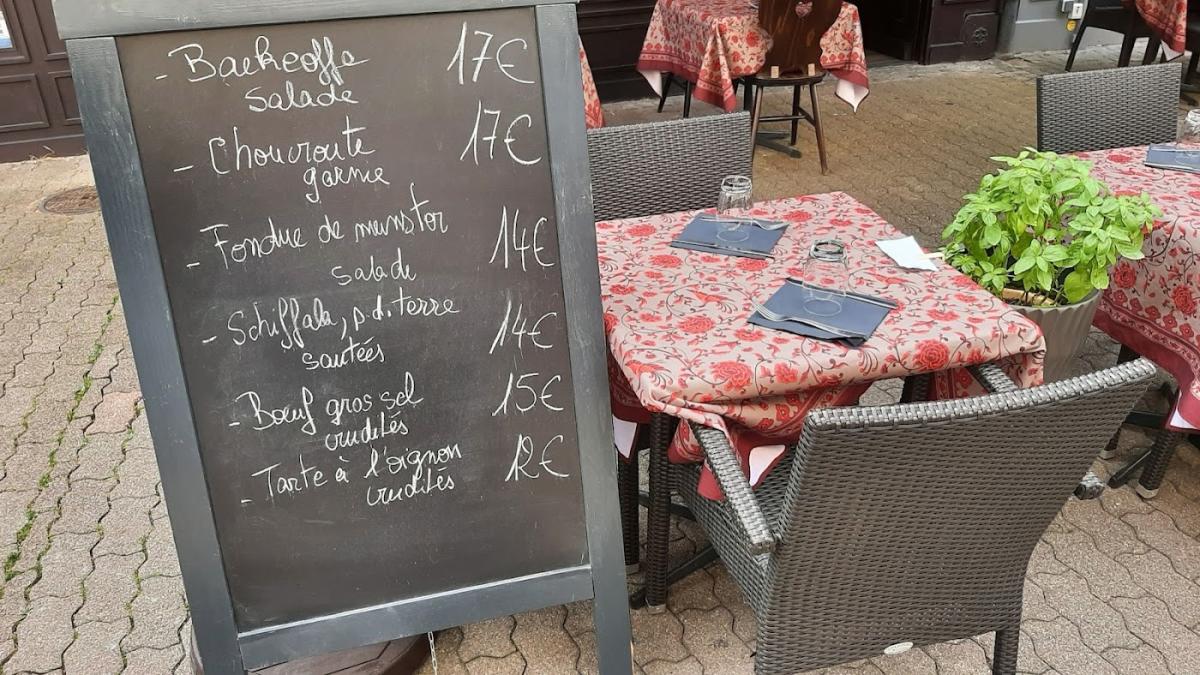 - Baekeoffe 17€
salade
- Choucroute 17€
garnie
- Fondue de munstor 14€
salade
- Schiffala, p.d.terre 14€
sautées
- Bœuf gros sel 15€
crudités
- Tarte à l'oignon 12€
crudités